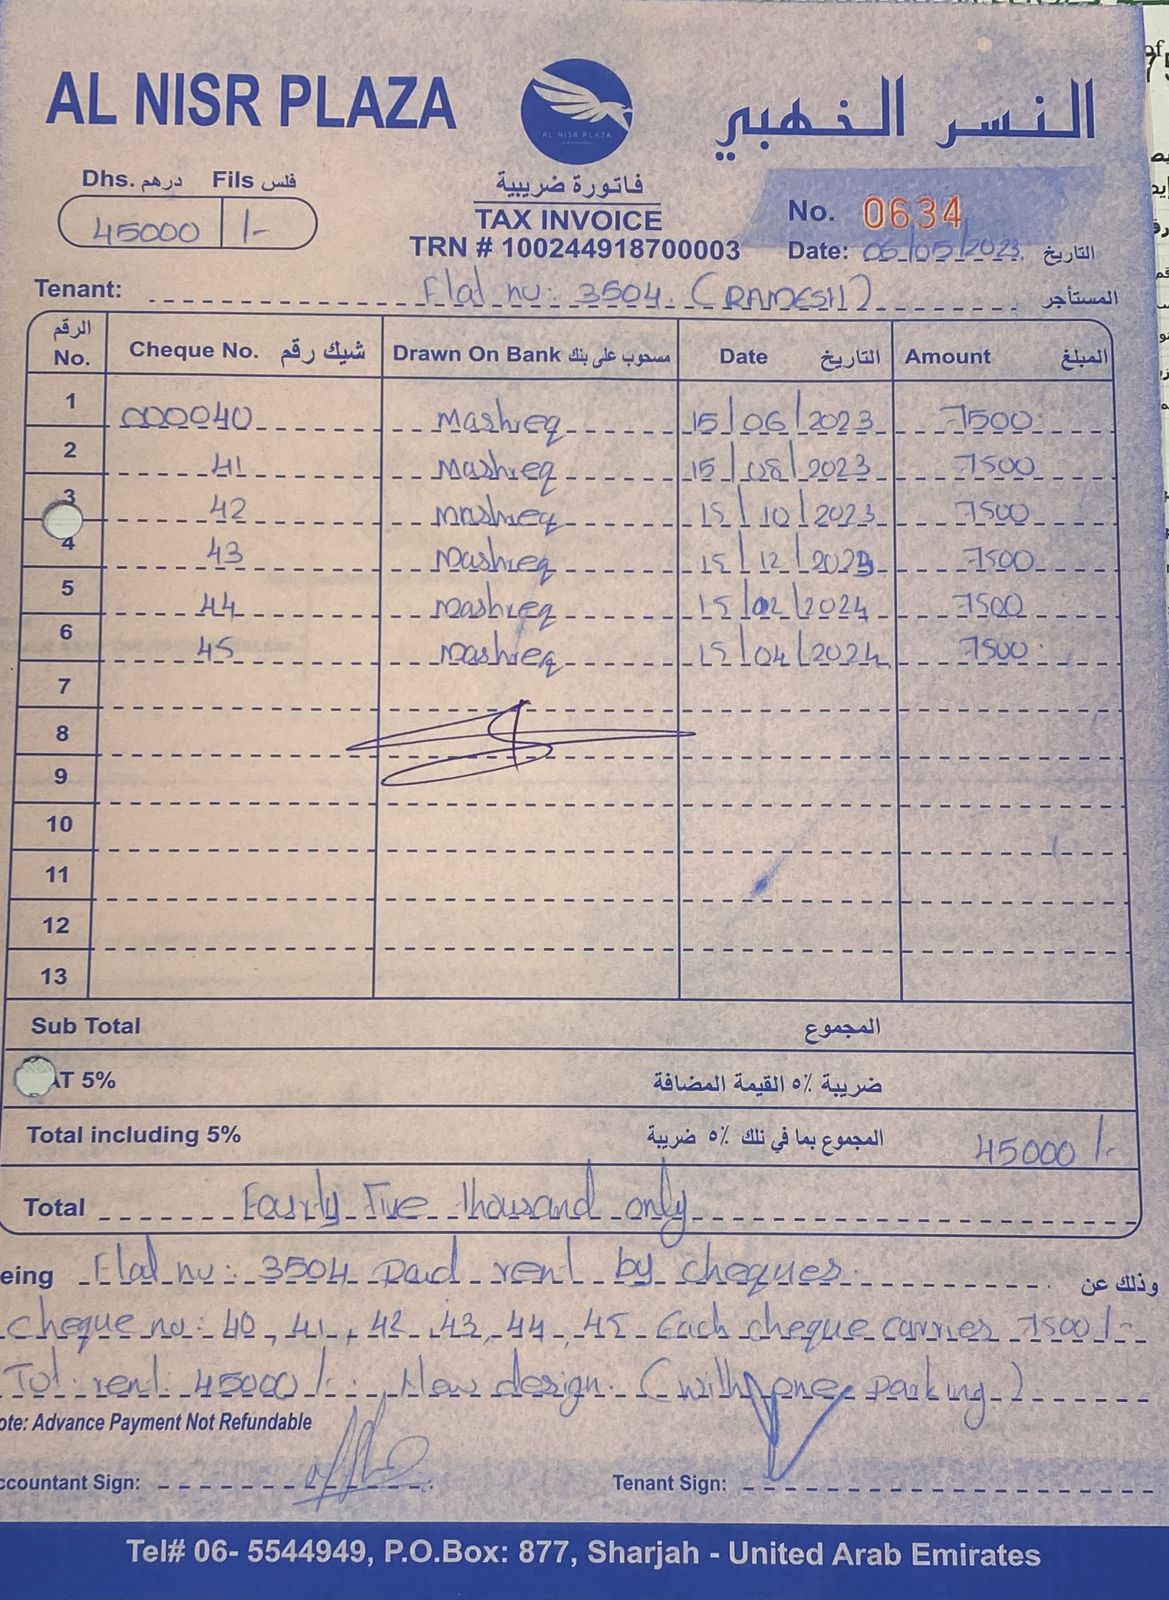 AL NISR PLAZA
AL NISR PLAZA
النسر الذهبي
Dhs. درهم Fils فلس
45000 /-
فاتورة ضريبية
TAX INVOICE
TRN # 100244918700003
No. 0634
Date: 06/05/2023 التاريخ
Tenant: Flat no: 3504 (RAMESH) المستأجر
الرقم No. Cheque No. شيك رقم Drawn On Bank مسحوب على بنك Date التاريخ Amount المبلغ
1 000040 Mashreq 15/06/2023 7500
2 41 Mashreq 15/08/2023 7500
3 42 Mashreq 15/10/2023 7500
4 43 Mashreq 15/12/2023 7500
5 44 Mashreq 15/02/2024 7500
6 45 Mashreq 15/04/2024 7500
7
8
9
10
11
12
13
Sub Total المجموع
AT 5% ضريبة ٥٪ القيمة المضافة
Total including 5% المجموع بما في ذلك ٥٪ ضريبة 45000/-
Total Fourty Five thousand only
eing Flat no: 3504 Paid rent by cheques. وذلك عن
cheque no: 40, 41, 42, 43, 44, 45 Each cheque carries 7500/-
Tot: rent: 45000/-. New design. (with one parking)
ote: Advance Payment Not Refundable
ccountant Sign: Tenant Sign:
Tel# 06- 5544949, P.O.Box: 877, Sharjah - United Arab Emirates